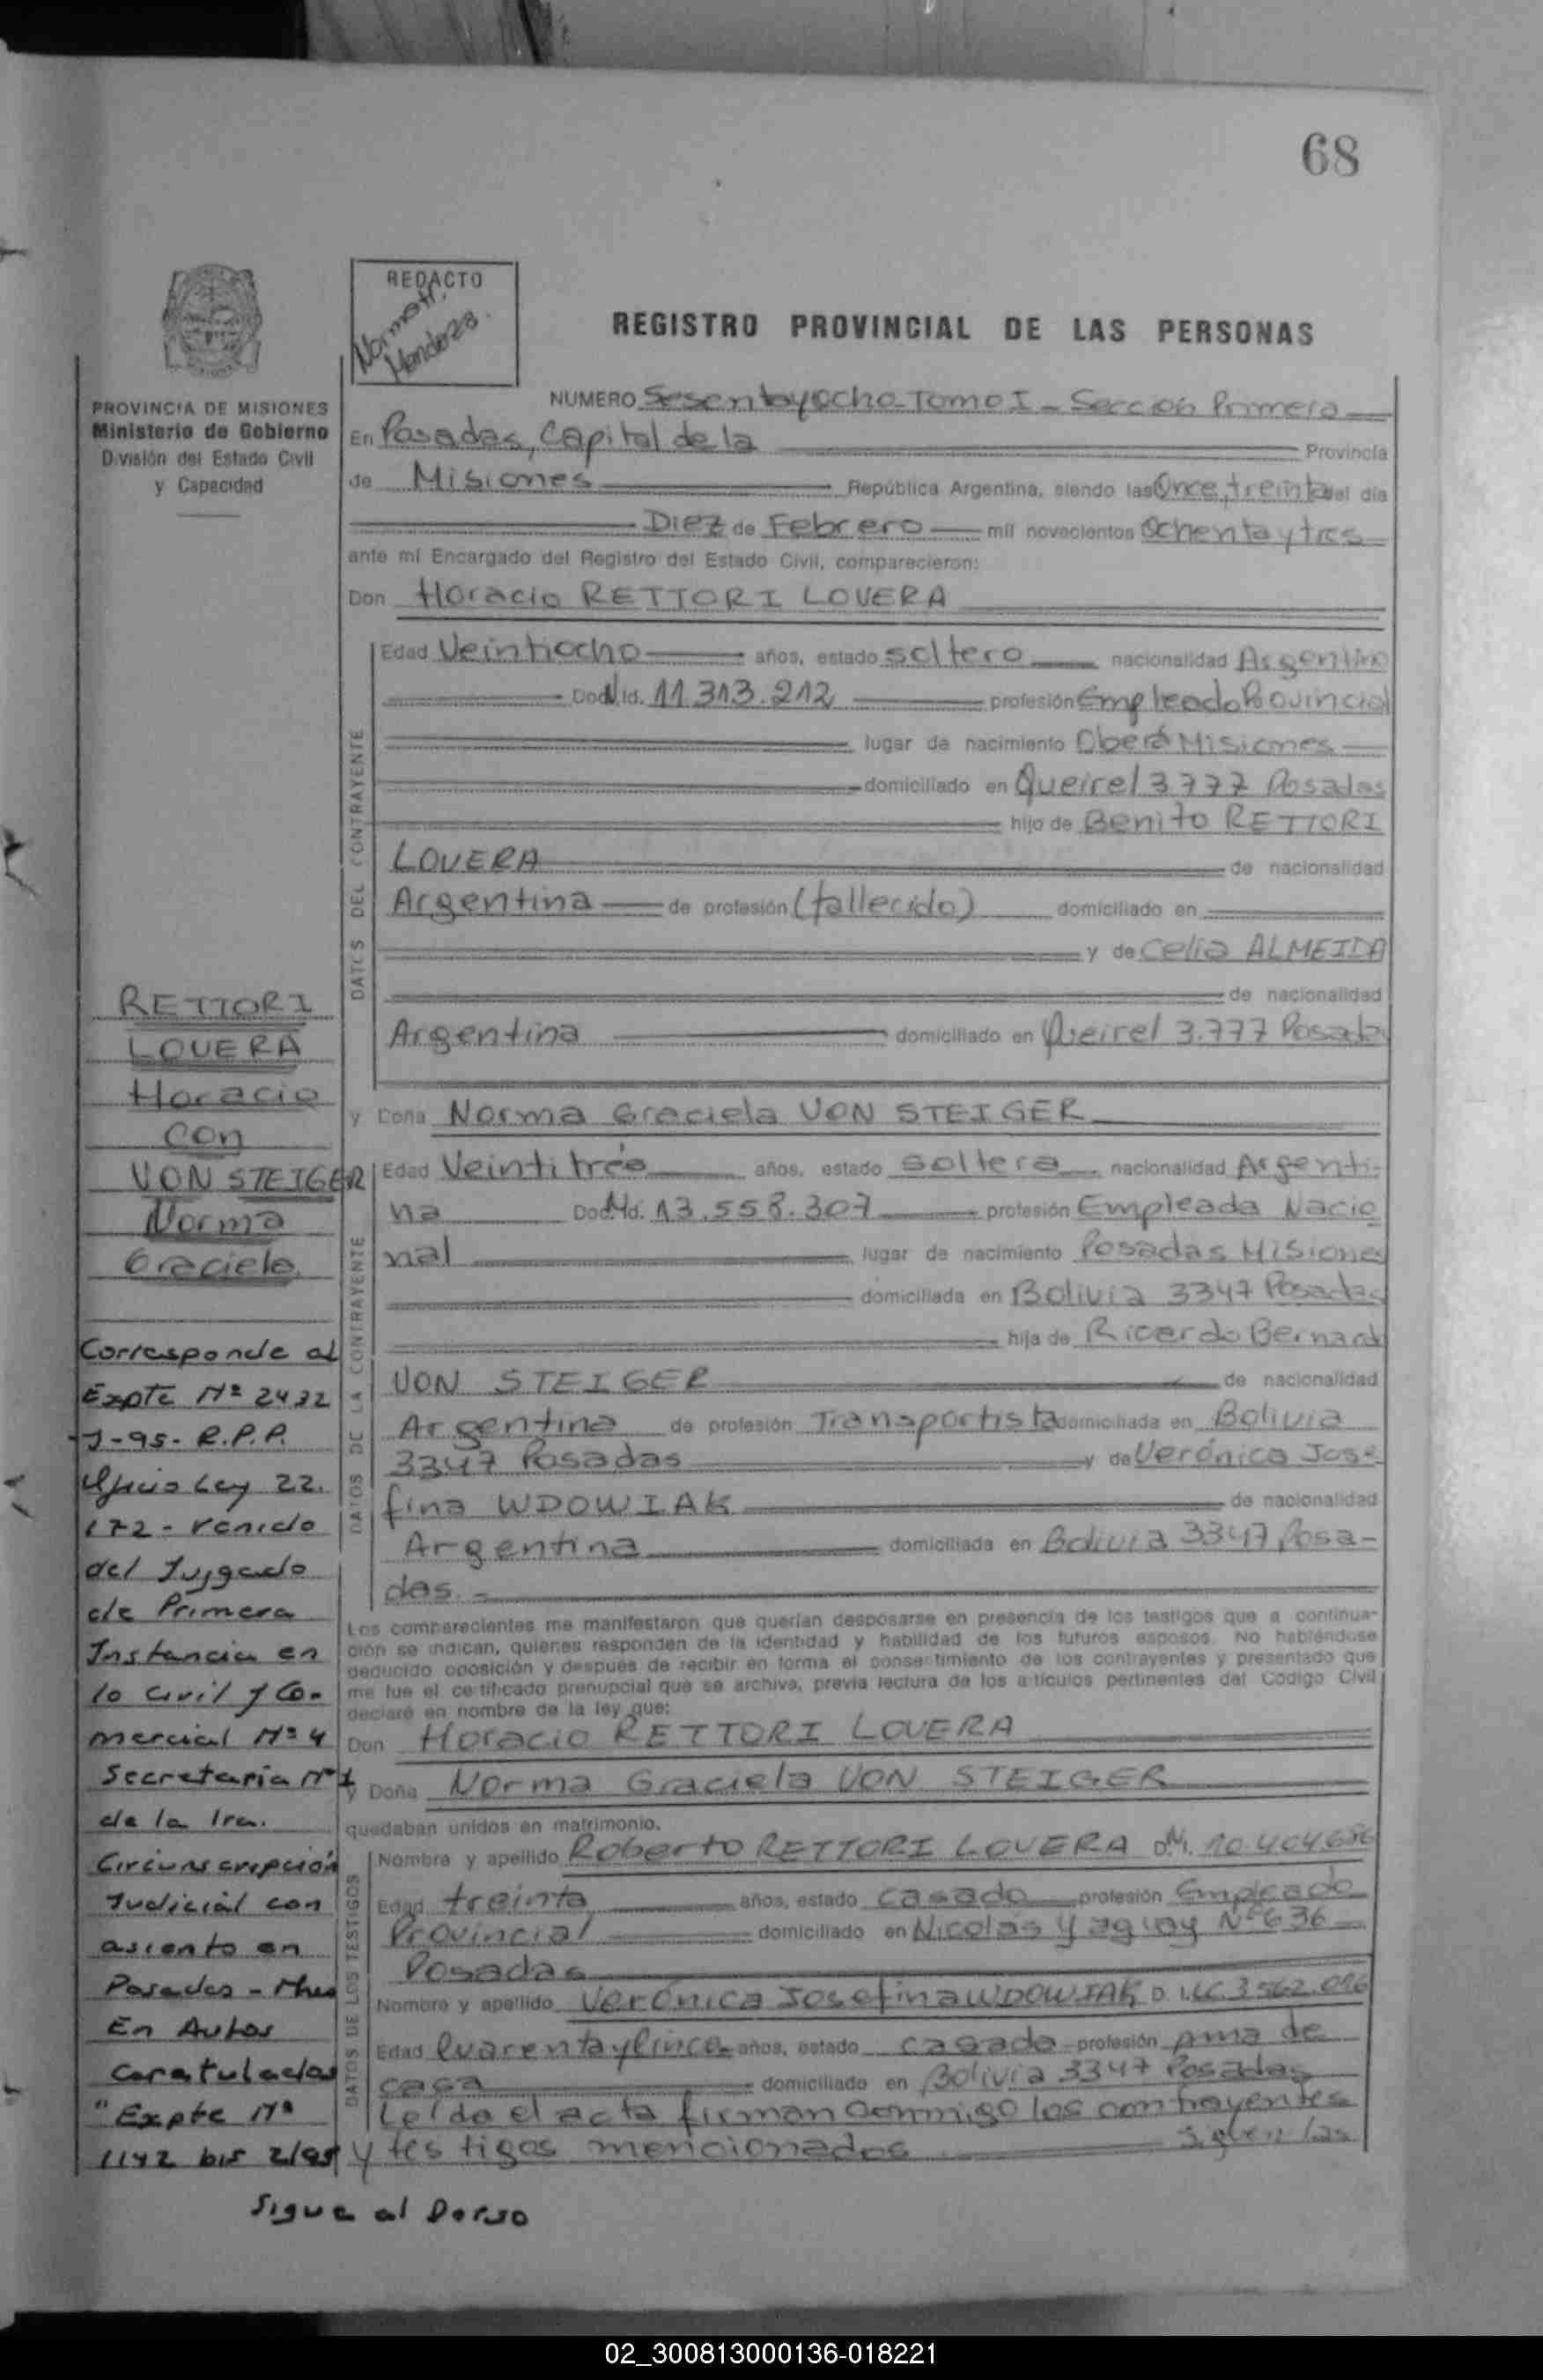 68
REDACTO
Norma H.
Mendoza.
REGISTRO PROVINCIAL DE LAS PERSONAS
PROVINCIA DE MISIONES
Ministerio de Gobierno
División del Estado Civil
y Capacidad
NUMERO Sesentayocho-Tomo I - Sección Primera
En Posadas, Capital de la Provincia
de Misiones República Argentina, siendo las Once, treinta del día
Diez de Febrero mil novecientos Ochenta y tres
ante mí Encargado del Registro del Estado Civil, comparecieron:
Don Horacio RETTORI LOVERA
DATOS DEL CONTRAYENTE
Edad Veintiocho años, estado soltero nacionalidad Argentino
Doc. Id. 11.313.212 profesión Empleado Provincial
lugar de nacimiento Oberá Misiones
domiciliado en Queirel 3.777 Posadas
hijo de Benito RETTORI
LOVERA de nacionalidad
Argentina de profesión (fallecido) domiciliado en
y de Celia ALMEIDA
de nacionalidad
Argentina domiciliado en Queirel 3.777 Posadas
y Doña Norma Graciela VON STEIGER
DATOS DE LA CONTRAYENTE
Edad Veintitrés años, estado soltera nacionalidad Argenti-
na Doc. Id. 13.558.307 profesión Empleada Nacio
nal lugar de nacimiento Posadas Misiones
domiciliada en Bolivia 3347 Posadas
hija de Ricardo Bernardo
VON STEIGER de nacionalidad
Argentina de profesión Transportista domiciliada en Bolivia
3347 Posadas y de Verónica Jose
fina WDOWIAK de nacionalidad
Argentina domiciliada en Bolivia 3347 Posa-
das.-
Los comparecientes me manifestaron que querían desposarse en presencia de los testigos que a continua-
ción se indican, quienes responden de la identidad y habilidad de los futuros esposos. No habiéndose
deducido oposición y después de recibir en forma el consentimiento de los contrayentes y presentado que
me fue el certificado prenupcial que se archiva, previa lectura de los artículos pertinentes del Código Civil
declaré en nombre de la ley que:
Don Horacio RETTORI LOVERA
y Doña Norma Graciela VON STEIGER
quedaban unidos en matrimonio.
DATOS DE LOS TESTIGOS
Nombre y apellido Roberto RETTORI LOVERA D.N.I. 10.404.656
Edad treinta años, estado casado profesión Empleado
Provincial domiciliado en Nicolás Yaguay Nº 636
Posadas
Nombre y apellido Verónica Josefina WDOWIAK D. I. LC. 3.562.016
Edad Cuarenta y Cinco años, estado casada profesión Ama de
casa domiciliado en Bolivia 3347 Posadas
Leída el acta firman conmigo los contrayentes
y testigos mencionados Siguen las
RETTORI
LOVERA
Horacio
con
VON STEIGER
Norma
Graciela
Corresponde al
Expte Nº 2432
-J-95- R.P.P.
Oficio Ley 22.
172 - venido
del Juzgado
de Primera
Instancia en
lo Civil y Co-
mercial Nº 4
Secretaria Nº 1
de la 1ra.
Circunscripción
Judicial con
asiento en
Posadas - Mnes
En Autos
Caratulados
"Expte Nº
1142 bis 2/95
Sigue al Dorso
02_300813000136-018221